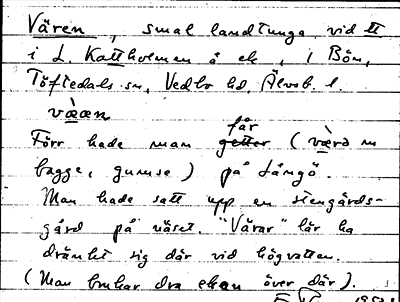 Vären, smal landtunga vid tt
i L. Kattholmen å ek, i Bön,
Töftedals sn, Vedbo hd, Älvsb. l.
vä̀ræn
får
Förr hade man getter (vä̀rd m
bagge, gumse) på Långö.
Man hade satt upp en stengärds-
gård på näset. "Värar" lär ha
dränkt sig där vid högvatten.
(Man brukar dra ekan över där).